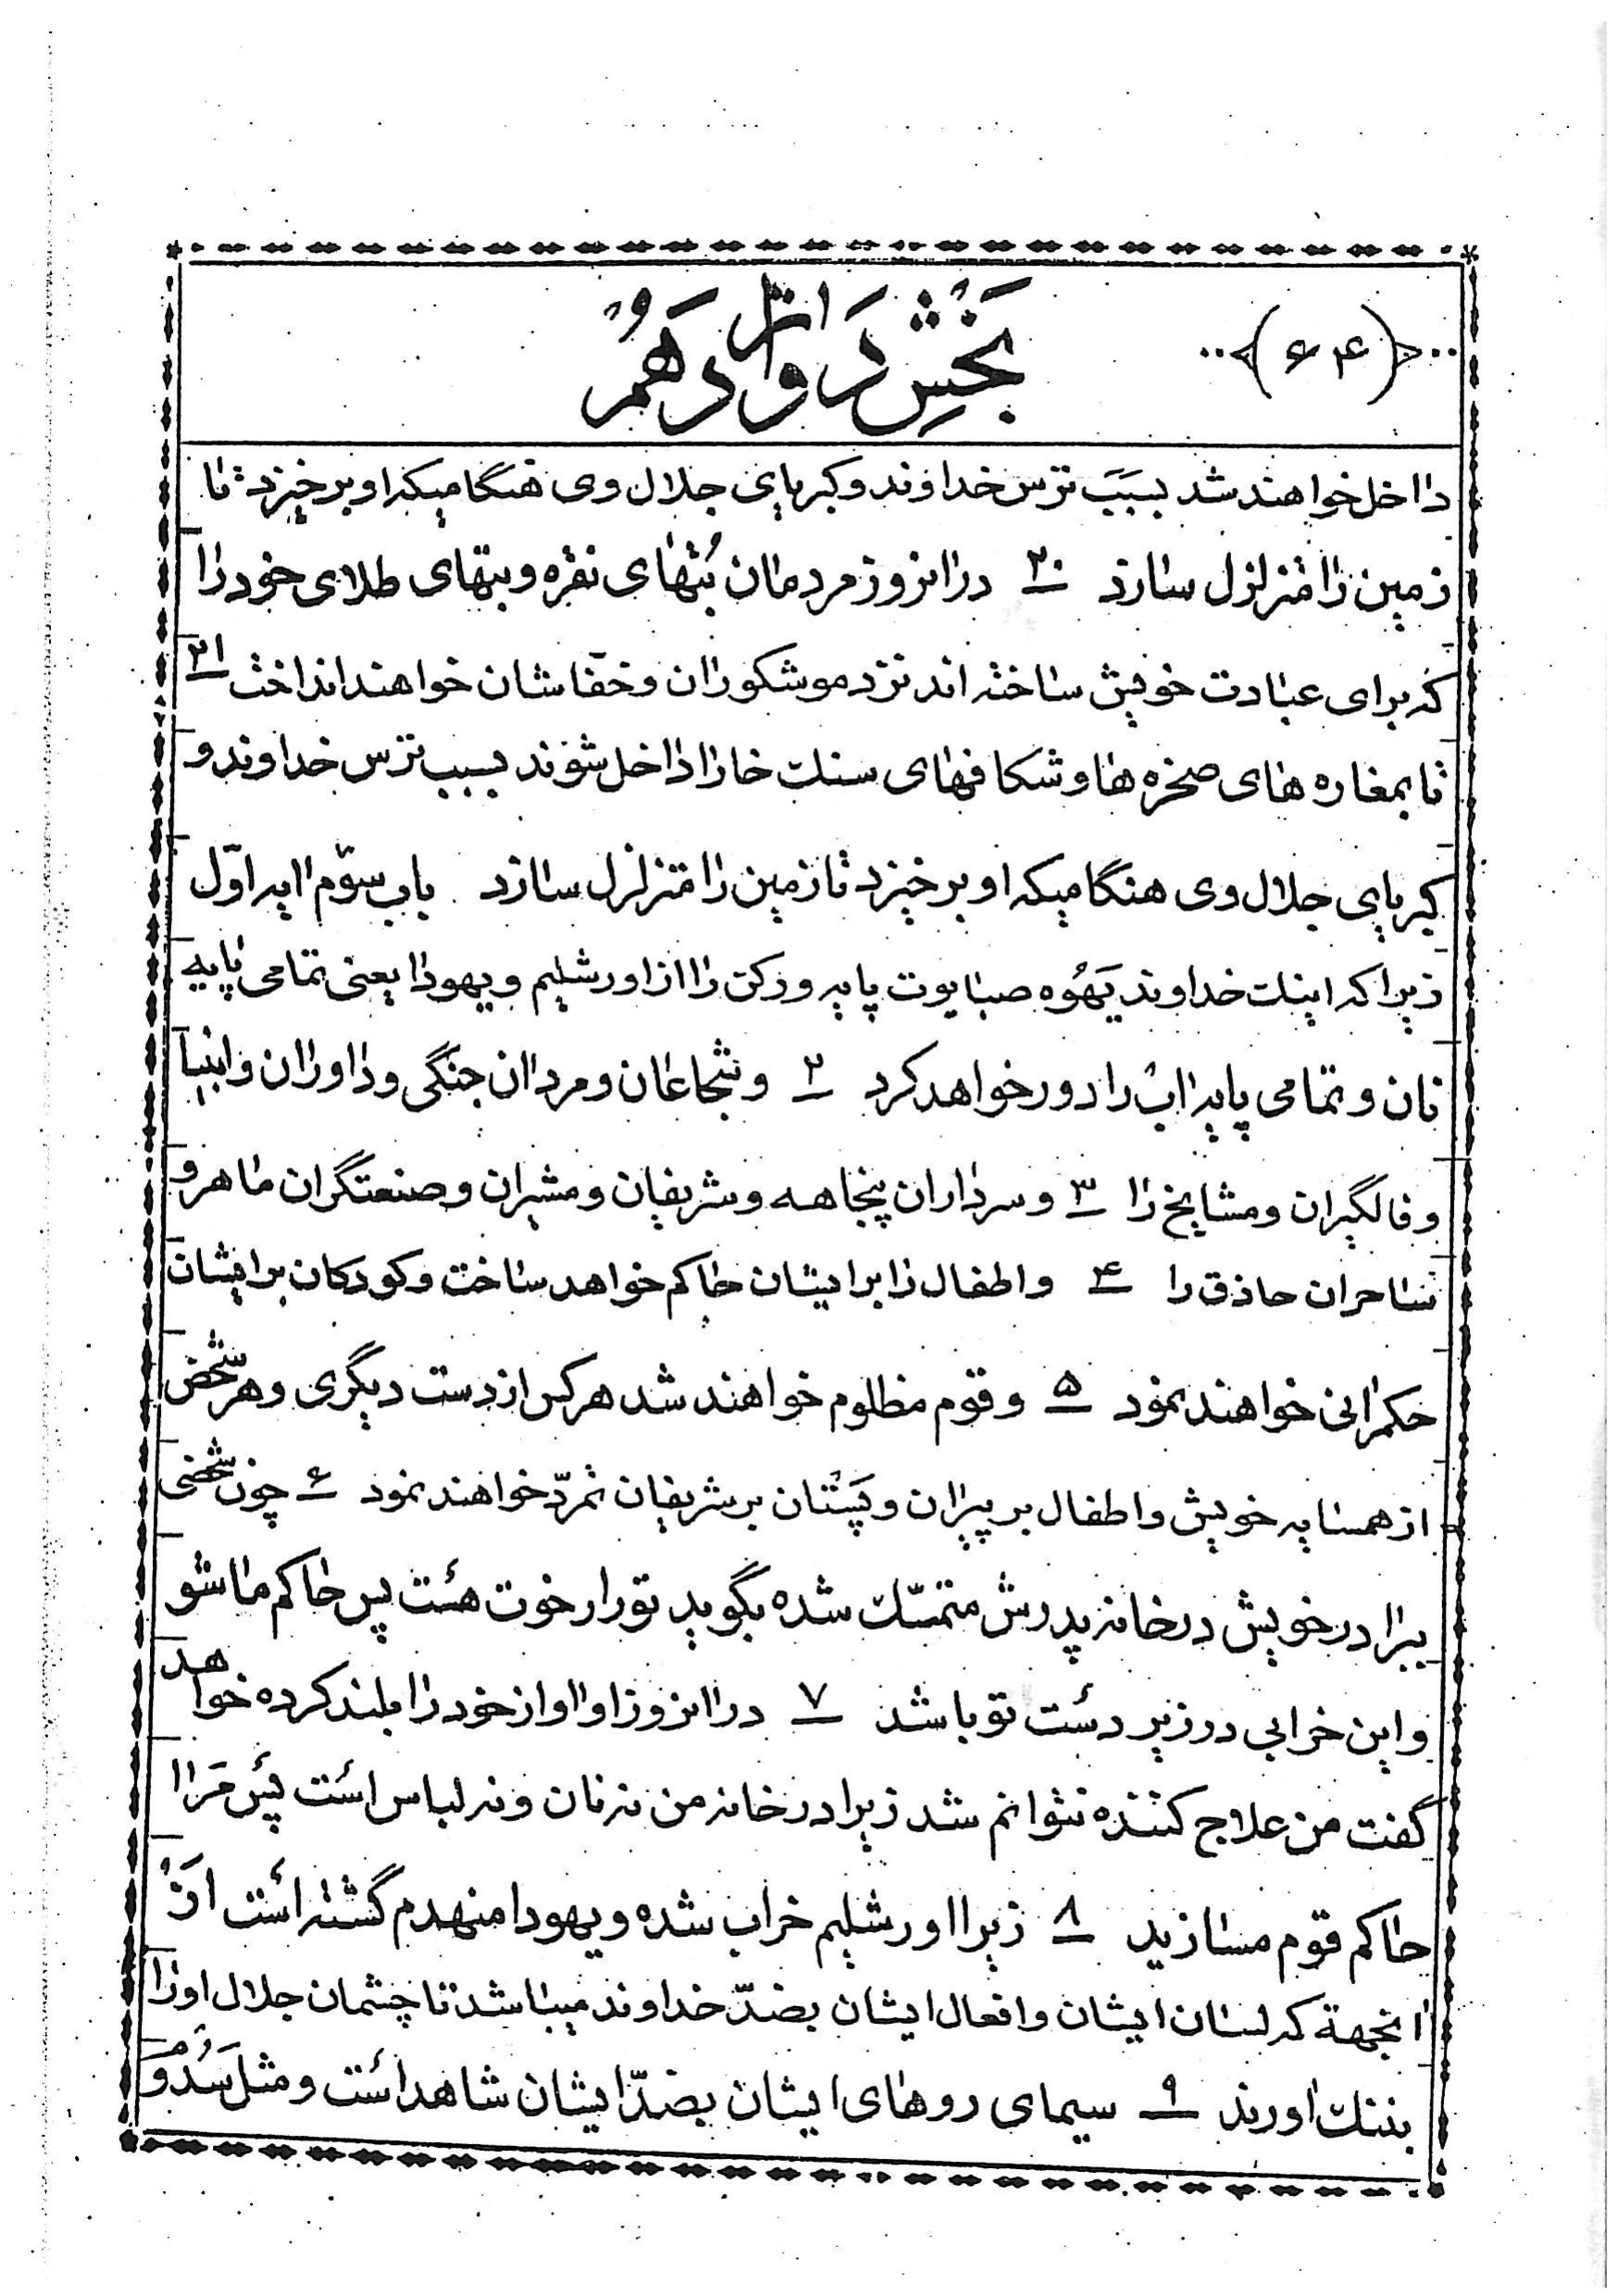 (۶۴)
بخش دوازدهم
داخل خواهند شد بسبب ترس خداوند و کبریای جلال وی هنگامیکه او برخیزد تا
زمین را متزلزل سازد ۲۰ درانروز مردمان بُتهای نقره و بتهای طلای خود را
که برای عبادت خویش ساخته اند نزد موشکوران و خفاشان خواهند انداخت ۲۱
تا بمغاره های صخره ها و شکافهای سنك خارا داخل شوند بسبب ترس خداوند و
کبریای جلال وی هنگامیکه او برخیزد تا زمین را متزلزل سازد باب سوّم ایه اوّل
زیرا که اینك خداوند یَهُوه صبایوت پایه و رکن را از اورشلیم و یهودا یعنی تمامی پایه
نان و تمامی پایه اب را دور خواهد کرد ۲ و شجاعان و مردان جنگی و داوران و انبیا
و فالگیران و مشایخ را ۳ و سرداران پنجاهه و شریفان و مشیران و صنعتگران ماهر و
ساحران حاذق را ۴ و اطفال را برایشان حاکم خواهد ساخت و کودکان برایشان
حکمرانی خواهند نمود ۵ و قوم مظلوم خواهند شد هرکس از دست دیگری و هر شخص
از همسایه خویش و اطفال بر پیران و پَستان بر شریفان تمرّد خواهند نمود ۶ چون شخصی
ببرادر خویش در خانه پدرش متمسّك شده بگوید تو را رخوت هست پس حاکم ما شو
و این خرابی در زیر دست تو باشد ۷ درانروز او اواز خود را بلند کرده خواهد
گفت من علاج کننده نتوانم شد زیرا در خانه من نه نان و نه لباس است پس مَرا
حاکم قوم مسازید ۸ زیرا اورشلیم خراب شده و یهودا منهدم گشته است از
انجهة که لسان ایشان و افعال ایشان بضدّ خداوند میباشد تا چشمان جلال او را
بننك اورند ۹ سیمای روهای ایشان بضدّ ایشان شاهد است و مثل سَدُوم